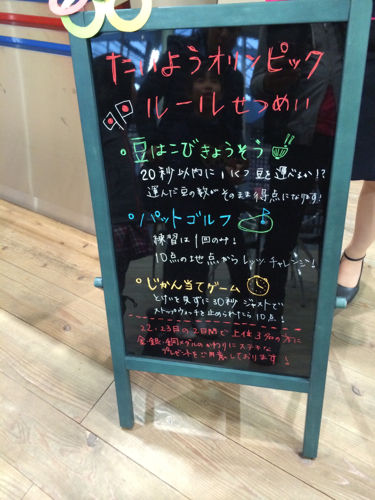 たいようオリンピック
ルールせつめい
豆はこびきょうそう
20秒以内に1つ豆を運べるか!?
運んだ豆の数がそのまま得点になります!
パットゴルフ
練習は1回のみ!
10点の地点からレッツチャレンジ!
じかん当てゲーム
とけいを見ずに30秒ジャストで
ストップウォッチを止められたら10点!
22・23日の2日間で上位3名の方に
金・銀・銅メダルのかわりにステキな
プレゼントをご用意しております!